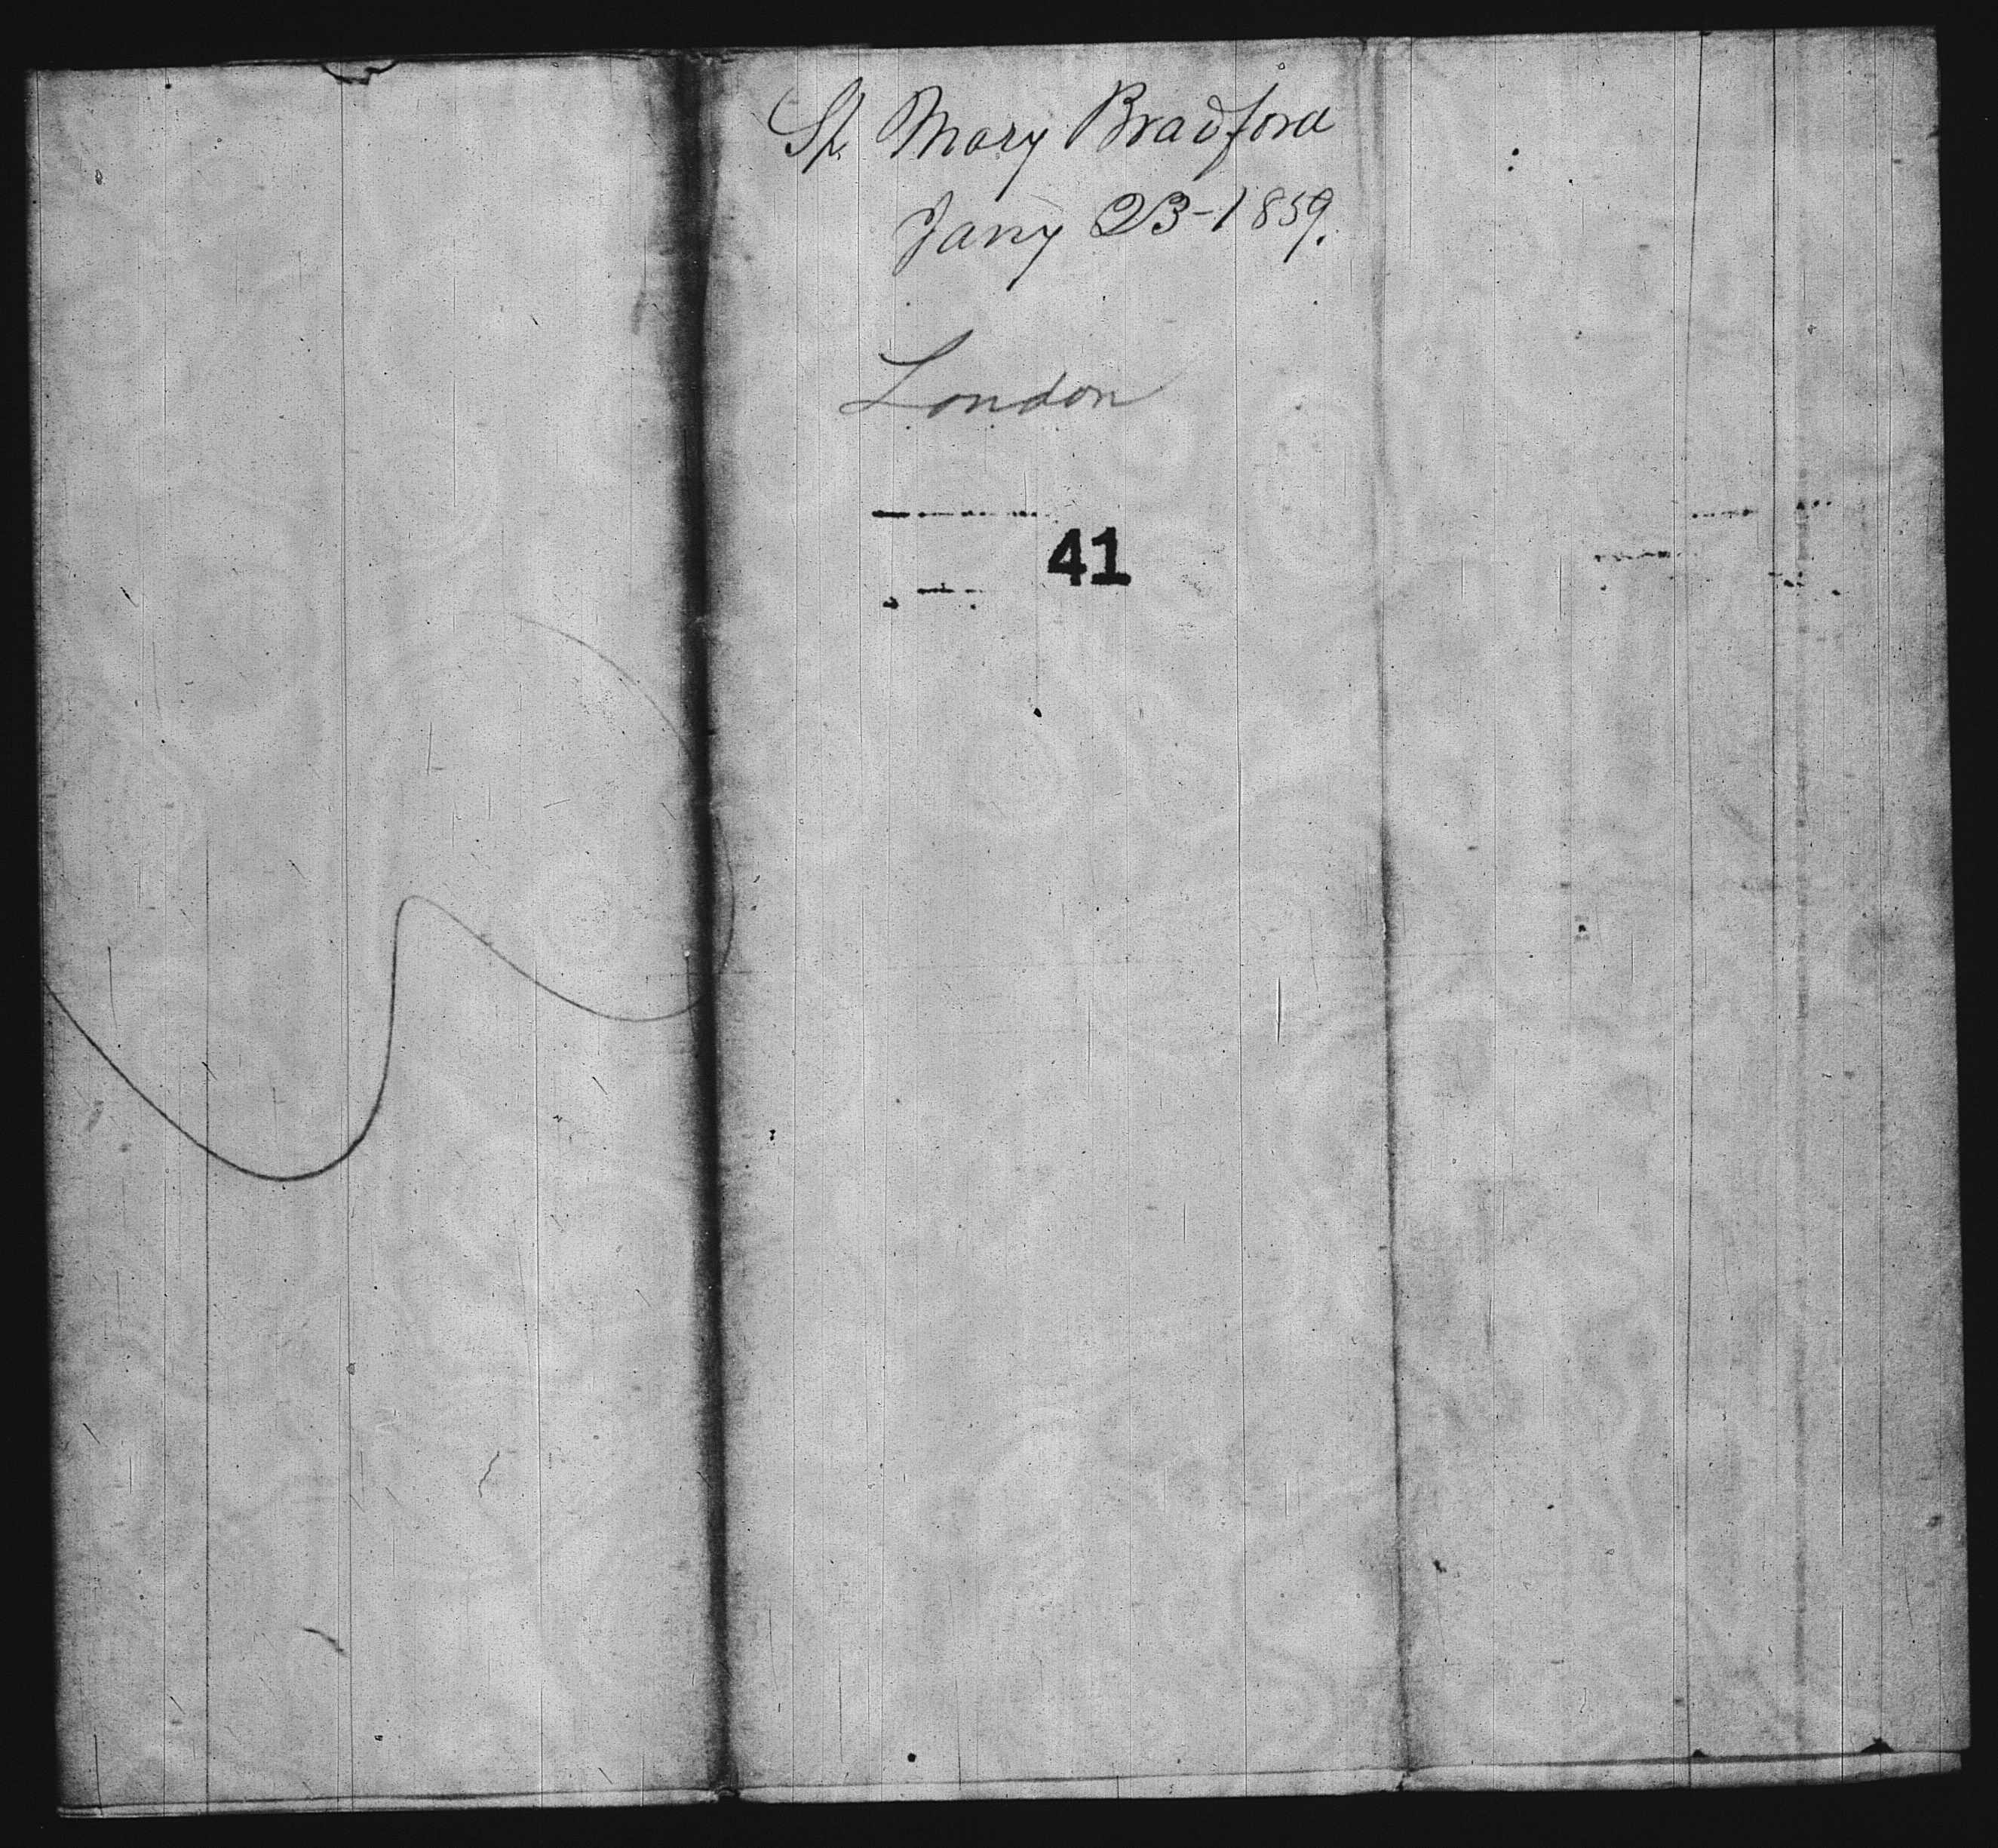 Sh. Mary Bradford
Jany 23-1859.
London
41